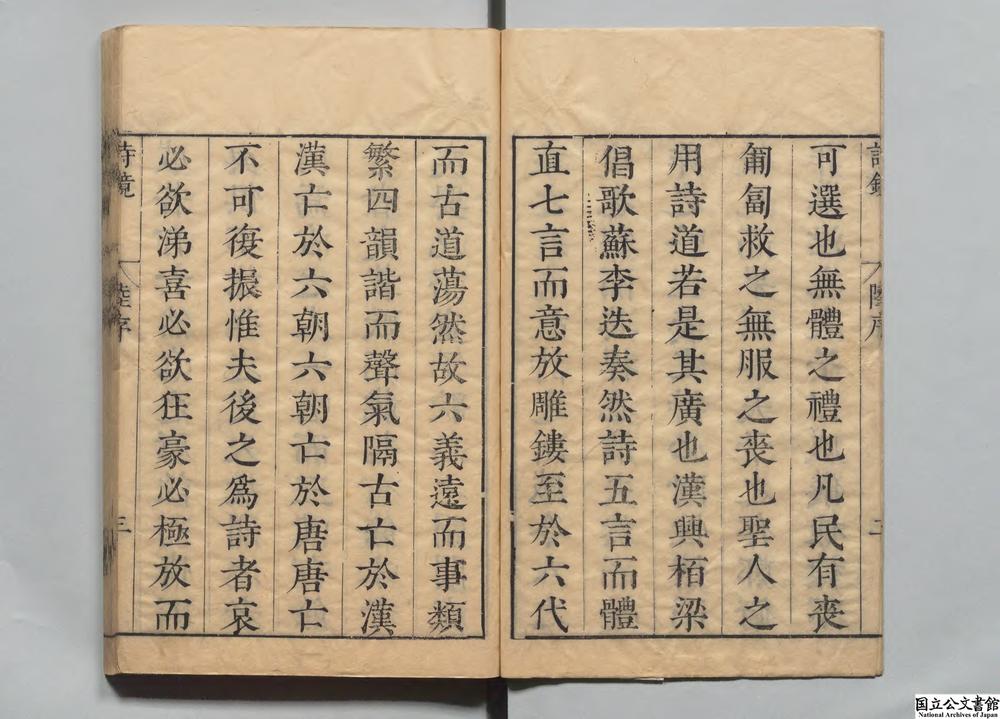 可選也無體之禮也凡民有喪
匍匐救之無服之喪也聖人之
用詩道若是其廣也漢興栢梁
倡歌蘇李迭奏然詩五言而體
直七言而意放雕鏤至於六代
而古道蕩然故六義遠而事類
繁四韻諧而聲氣隔古亡於漢
漢亡於六朝六朝亡於唐唐亡
不可復振惟夫後之爲詩者哀
必欲涕喜必欲狂豪必極放而
詩鏡
陸序
三
二
国立公文書館
National Archives of Japan